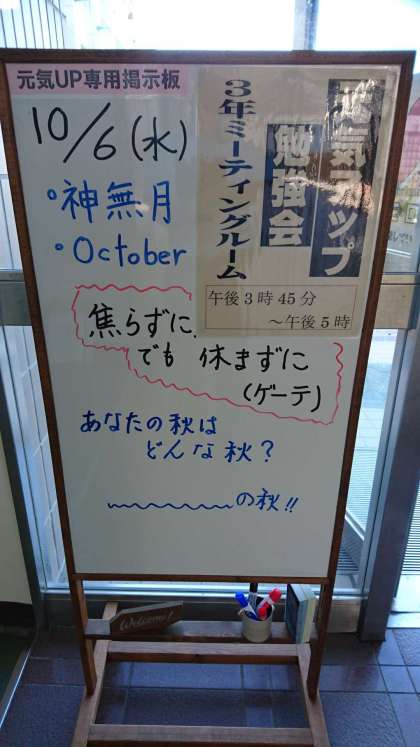 元気UP専用掲示板
10/6(水)
・神無月
・October
元気アップ
勉強会
3年ミーティングルーム
午後3時45分
～午後5時
焦らずに、
でも 休まずに
(ゲーテ)
あなたの秋は
どんな秋?
の秋!!
Welcome!